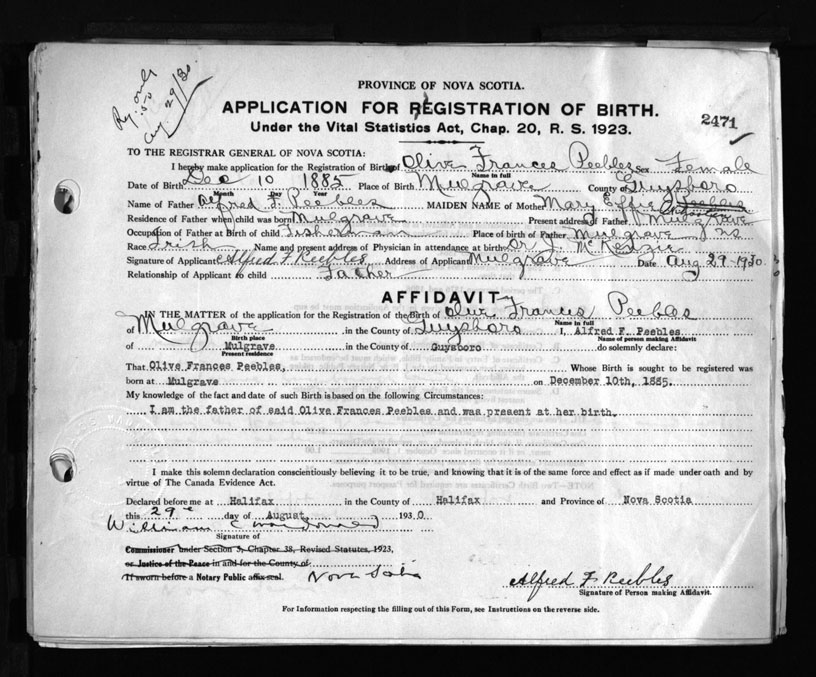 Aug 29/30
PROVINCE OF NOVA SCOTIA.
APPLICATION FOR REGISTRATION OF BIRTH.
2471
Under the Vital Statistics Act, Chap. 20, R. S. 1923.
TO THE REGISTRAR GENERAL OF NOVA SCOTIA:
I hereby make application for the Registration of Birth of Olive Frances Peebles Sex Female
Name in full
Date of Birth Dec 10 1885 Place of Birth Mulgrave County of Guysboro
Month Day Year
Name of Father Alfred F. Peebles MAIDEN NAME of Mother Mary Effie
Residence of Father when child was born Mulgrave Present address of Father Mulgrave
Occupation of Father at Birth of child Fisherman Place of birth of Father Mulgrave NS
Race Irish Name and present address of Physician in attendance at birth Dr J. McKenzie
Signature of Applicant Alfred F Peebles Address of Applicant Mulgrave Date Aug 29-1930
Relationship of Applicant to child Father
AFFIDAVIT
IN THE MATTER of the application for the Registration of the Birth of Olive Frances Peebles
Name in full
of Mulgrave in the County of Guysboro I, Alfred F. Peebles
Birth place Name of person making Affidavit
of Mulgrave in the County of Guysboro do solemnly declare:
Present residence
That Olive Frances Peebles, Whose Birth is sought to be registered was
born at Mulgrave on December 10th, 1885.
My knowledge of the fact and date of such Birth is based on the following Circumstances:
I am the father of said Olive Frances Peebles and was present at her birth.
I make this solemn declaration conscientiously believing it to be true, and knowing that it is of the same force and effect as if made under oath and by
virtue of The Canada Evidence Act.
Declared before me at Halifax in the County of Halifax and Province of Nova Scotia
this 29 day of August 1930
William C Macdonald
Signature of
Commissioner under Section 3, Chapter 38, Revised Statutes, 1923,
or Justice of the Peace in and for the County of
If sworn before a Notary Public affix seal. Nova Scotia
Alfred F Peebles
Signature of Person making Affidavit.
For Information respecting the filling out of this Form, see Instructions on the reverse side.